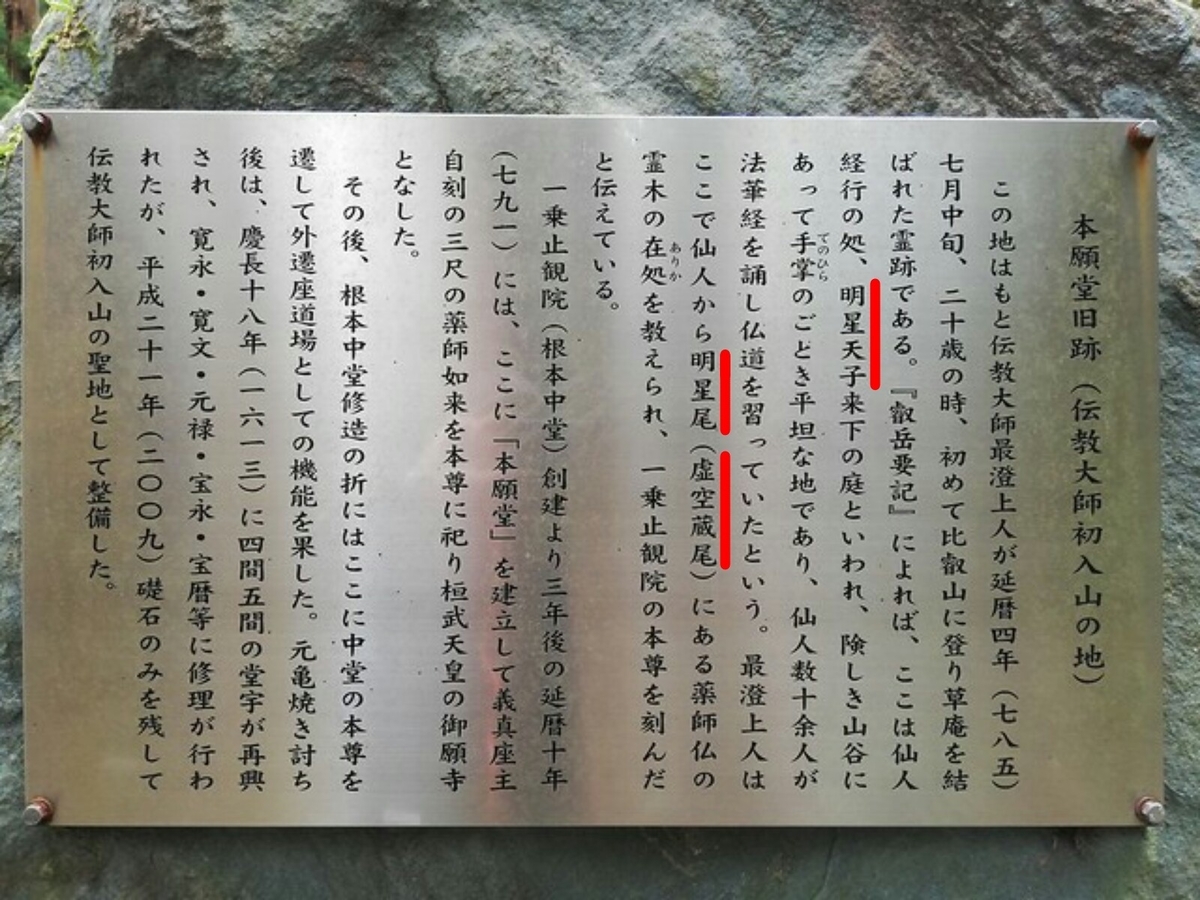 本願堂旧跡（伝教大師初入山の地）
この地はもと伝教大師最澄上人が延暦四年（七八五）
七月中旬、二十歳の時、初めて比叡山に登り草庵を結
ばれた霊跡である。『叡岳要記』によれば、ここは仙人
経行の処、明星天子来下の庭といわれ、険しき山谷に
あって手掌のごとき平坦な地であり、仙人数十余人が
てのひら
法華経を誦し仏道を習っていたという。最澄上人は
ここで仙人から明星尾（虚空蔵尾）にある薬師仏の
霊木の在処を教えられ、一乗止観院の本尊を刻んだ
ありか
と伝えている。
一乗止観院（根本中堂）創建より三年後の延暦十年
（七九一）には、ここに「本願堂」を建立して義真座主
自刻の三尺の薬師如来を本尊に祀り桓武天皇の御願寺
となした。
その後、根本中堂修造の折にはここに中堂の本尊を
遷して外遷座道場としての機能を果した。元亀焼き討ち
後は、慶長十八年（一六一三）に四間五間の堂宇が再興
され、寛永・寛文・元禄・宝永・宝暦等に修理が行わ
れたが、平成二十一年（二〇〇九）礎石のみを残して
伝教大師初入山の聖地として整備した。